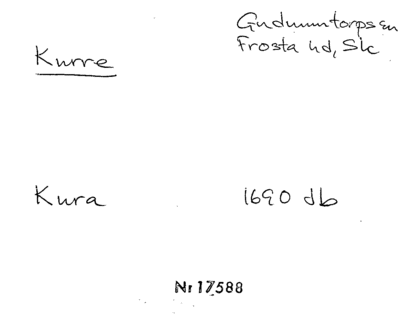 Gudmuntorps sn
Frosta hd, Sk
Kurre
Kura 1690 db
Nr 17588